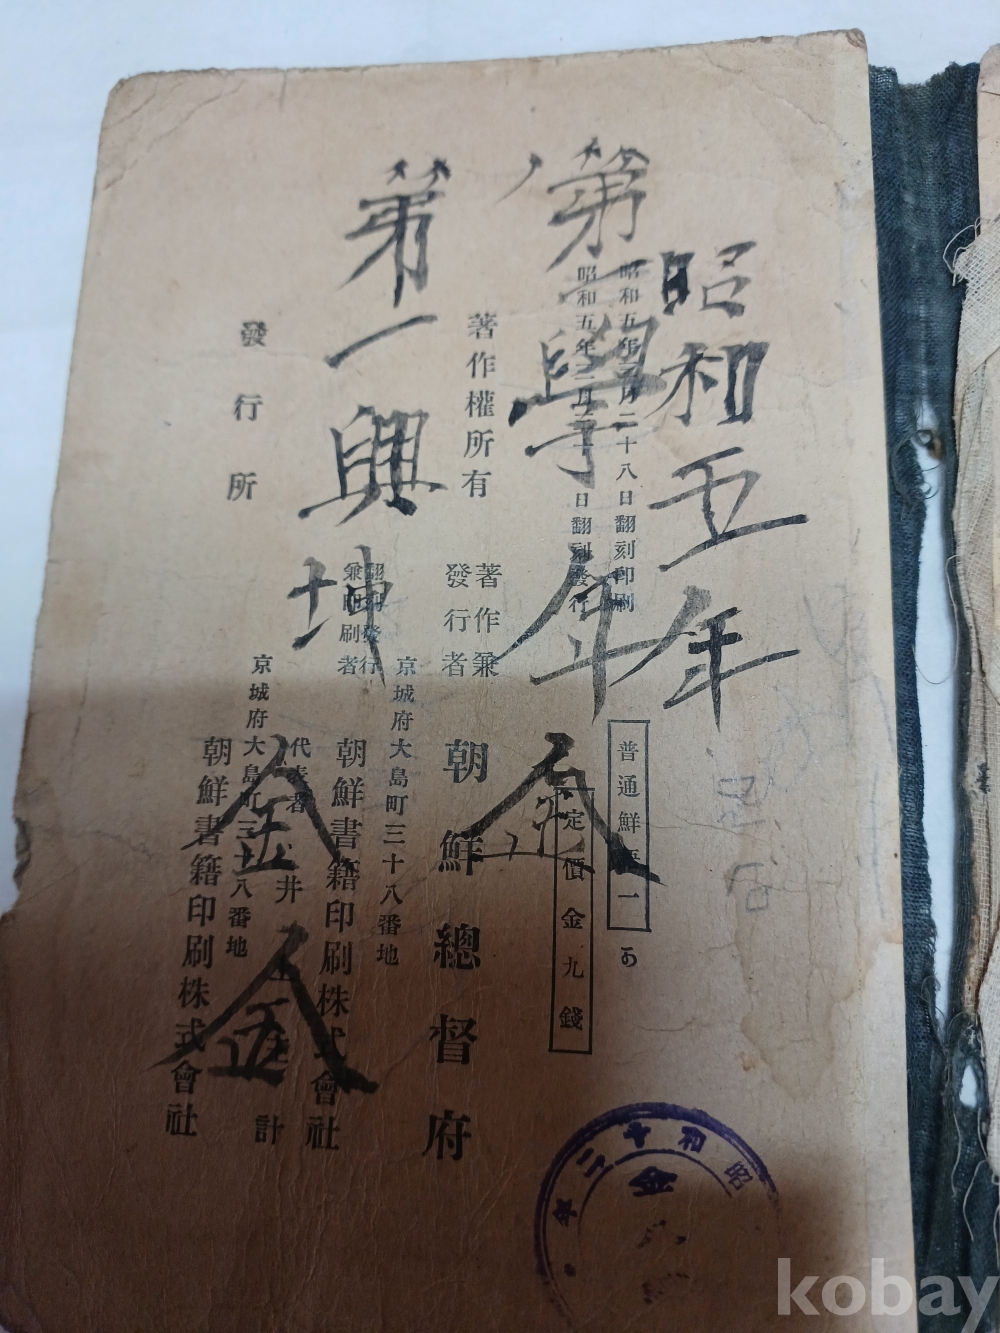 昭和五年
第一學年
金
第一興坤
金
金
昭和五年
月二十八日翻刻印刷
昭和五年
日翻刻發行
普通鮮
一
定價金九錢
著作權所有
著作兼
發行者
朝鮮總督府
京城府大島町三十八番地
翻刻發行
兼印刷者
朝鮮書籍印刷株式會社
代表者
井
計
發行所
京城府大島町三十八番地
朝鮮書籍印刷株式會社
昭和十二年
金
kobay